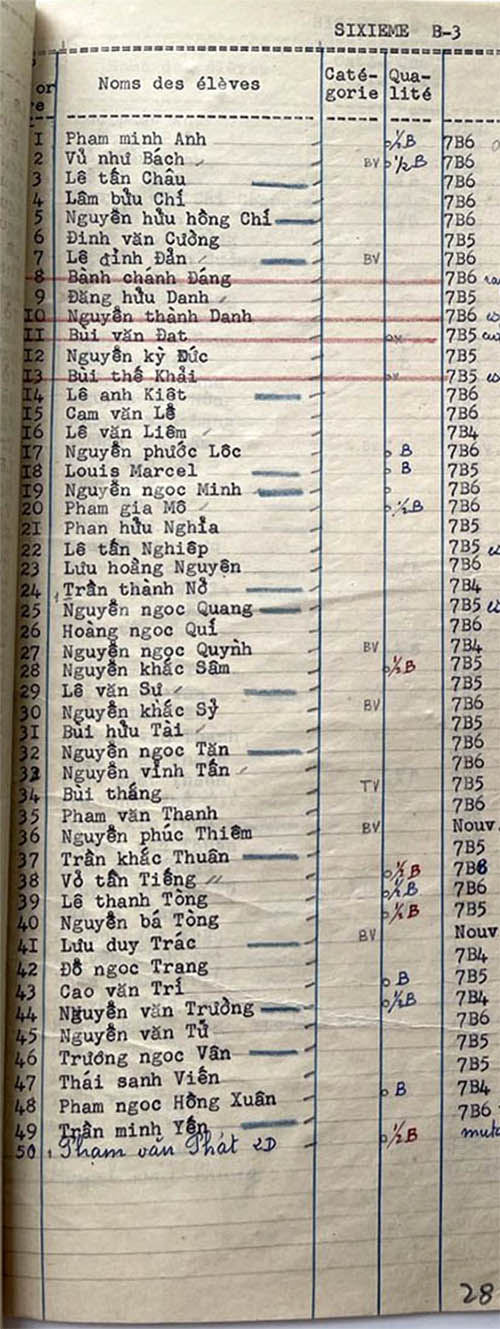 SIXIEME B-3
Noms des élèves Caté- Qua-
gorie lité
I Pham minh Anh ½B 7B6
2 Vủ như Bách BV ½B 7B6
3 Lê tấn Châu 7B6
4 Lâm bửu Chí 7B6
5 Nguyễn hửu hồng Chí 7B6
6 Đinh văn Cường 7B5
7 Lê đỉnh Đản BV 7B6
8 Bành chánh Đáng 7B6
9 Đăng hửu Danh 7B5
IO Nguyễn thành Danh 7B6
II Bùi văn Đat 7B5
I2 Nguyễn kỳ Đức 7B5
I3 Bùi thế Khải 7B5
I4 Lê anh Kiêt 7B6
I5 Cam văn Lễ 7B6
I6 Lê văn Liêm 7B4
I7 Nguyễn phước Lôc B 7B6
I8 Louis Marcel B 7B5
I9 Nguyễn ngoc Minh 7B6
20 Pham gia Mô ½B 7B6
2I Phan hửu Nghỉa 7B5
22 Lê tấn Nghiêp 7B5
23 Lưu hoằng Nguyên 7B6
24 Trần thành Nở 7B4
25 Nguyễn ngoc Quang 7B5
26 Hoàng ngoc Quí 7B6
27 Nguyễn ngoc Quỳnh BV 7B4
28 Nguyễn khắc Sâm ½B 7B5
29 Lê văn Sư 7B5
30 Nguyễn khắc Sỷ BV 7B6
3I Bùi hửu Tài 7B5
32 Nguyễn ngoc Tấn 7B6
33 Nguyễn vỉnh Tấn 7B6
34 Bùi thắng TV 7B5
35 Pham văn Thanh 7B6
36 Nguyễn phúc Thiêm BV Nouv.
37 Trần khắc Thuân 7B5
38 Vỏ tấn Tiếng ½B 7B6
39 Lê thanh Tòng ½B 7B6
40 Nguyễn bá Tòng ½B 7B5
4I Lưu duy Trác BV Nouv
42 Đỗ ngoc Trang 7B4
43 Cao văn Trí B 7B5
44 Nguyễn văn Trường ½B 7B4
45 Nguyễn văn Tử 7B6
46 Trương ngoc Vân 7B5
47 Thái sanh Viến 7B5
48 Pham ngoc Hồng Xuân B 7B4
49 Trần minh Yến 7B6
50 Pham văn Phát 2D ½B muta
28